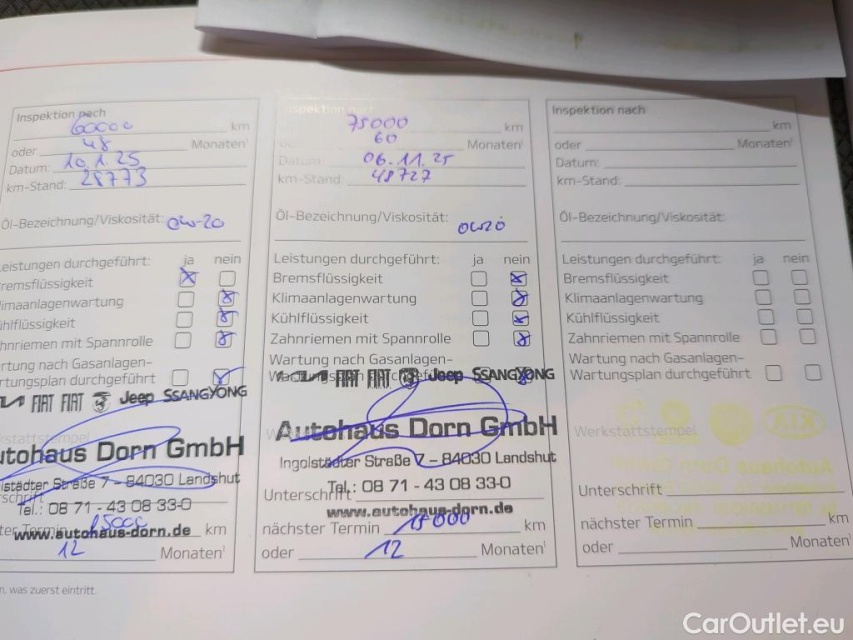 Inspektion nach 60000 km
oder 48 Monaten¹
Datum: 10.1.25
km-Stand: 28773
Öl-Bezeichnung/Viskosität: 0W-20
eistungen durchgeführt: ja nein
remsflüssigkeit
limaanlagenwartung
ühlflüssigkeit
hnriemen mit Spannrolle
rtung nach Gasanlagen-
rtungsplan durchgeführt
FIAT FIAT Jeep SSANGYONG
kstattstempel
utohaus Dorn GmbH
lstädter Straße 7 – 84030 Landshut
schrift
Tel.: 08 71 - 43 08 33-0
ter Termin 15000 km
www.autohaus-dorn.de
12 Monaten¹
n, was zuerst eintritt.
Inspektion nach 75000 km
60 Monaten¹
Datum: 06.11.25
km-Stand: 48727
Öl-Bezeichnung/Viskosität: 0W20
Leistungen durchgeführt: ja nein
Bremsflüssigkeit
Klimaanlagenwartung
Kühlflüssigkeit
Zahnriemen mit Spannrolle
Wartung nach Gasanlagen-
FIAT FIAT Jeep SSANGYONG
Autohaus Dorn GmbH
Ingolstädter Straße 7 – 84030 Landshut
Tel.: 08 71 - 43 08 33-0
Unterschrift
www.autohaus-dorn.de
nächster Termin 15000 km
oder 12 Monaten¹
Inspektion nach
km
oder Monaten¹
Datum:
km-Stand:
Öl-Bezeichnung/Viskosität:
Leistungen durchgeführt: ja nein
Bremsflüssigkeit
Klimaanlagenwartung
Kühlflüssigkeit
Zahnriemen mit Spannrolle
Wartung nach Gasanlagen-
Wartungsplan durchgeführt
Werkstattstempel
Unterschrift
nächster Termin km
oder Monaten¹
CarOutlet.eu